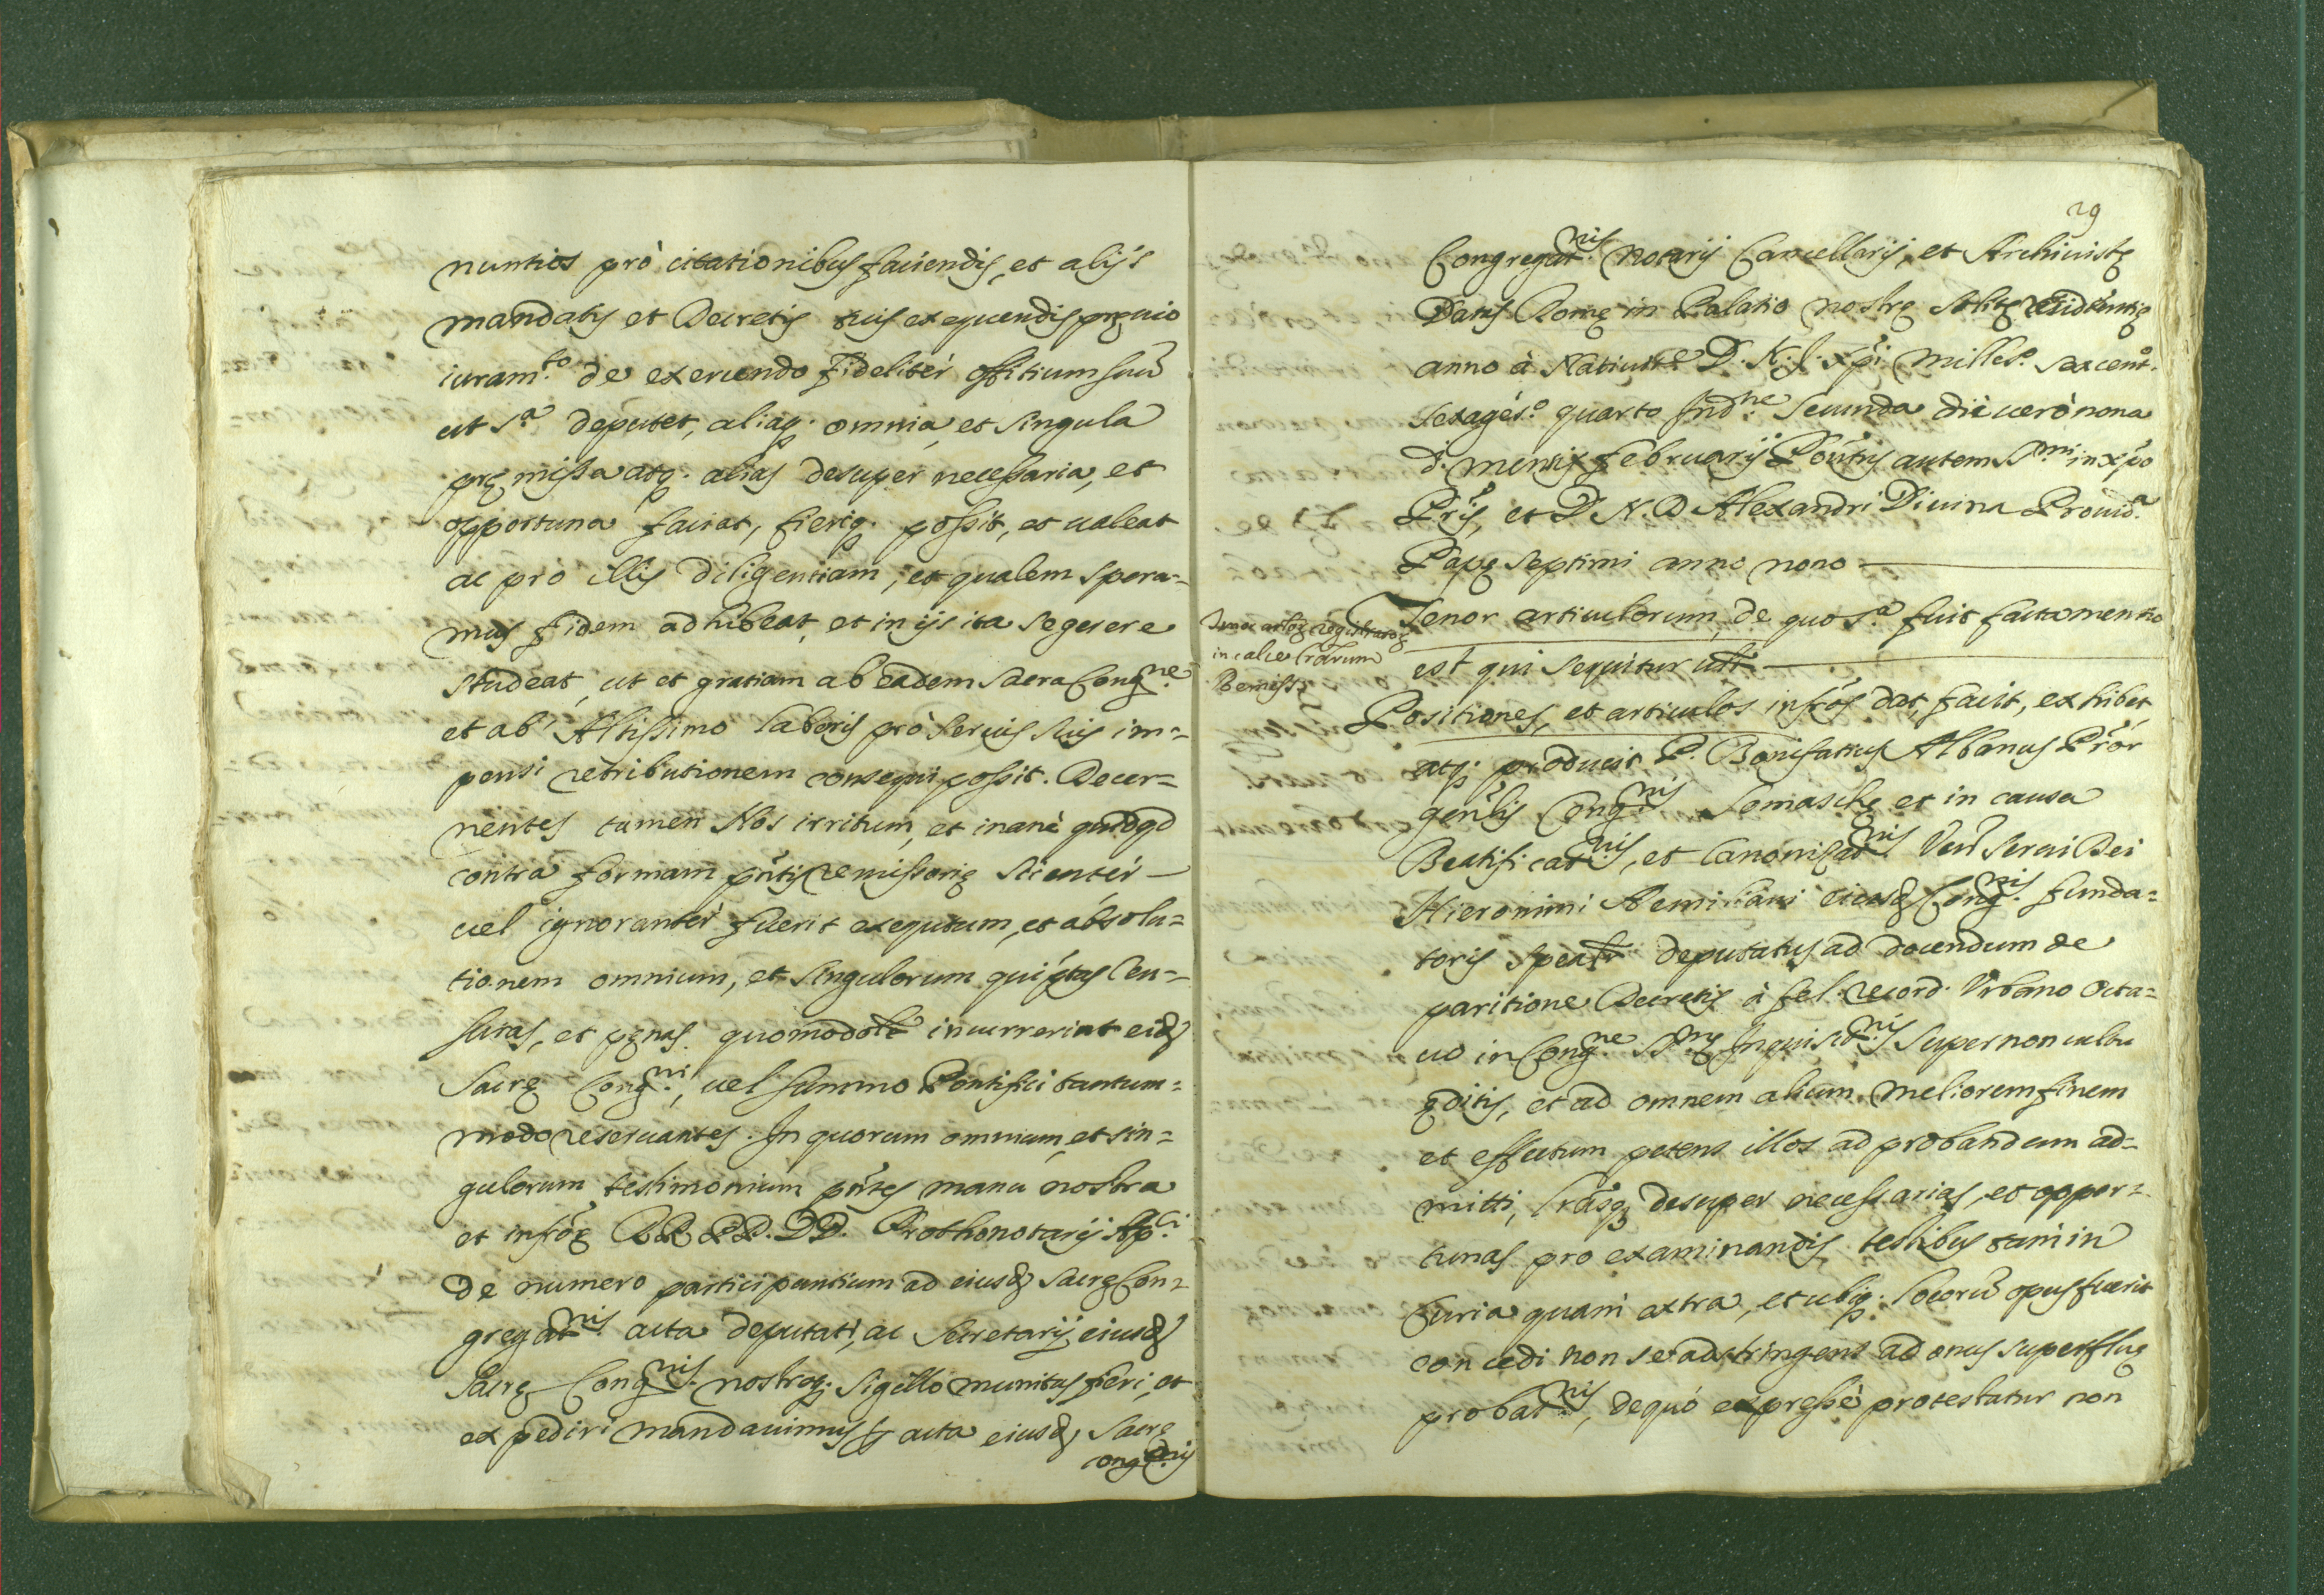 nuntios prò citationibus faciendis, et alijs
mandatis et Decretis suis exequendis pręuio
iuram.to de exercendo fideliter offitium suũ
ut s.a deputet, aliaq. omnia, et singula
pręmissa atq. alias desuper necessaria, et
opportuna faciat, fieriq. possit, et ualeat
ac pro illis diligentiam, et qualem spera=
mus fidem adhibeat, et in ijs ita se gerere
studeat, ut et gratiam ab eadem Sacra Cong.ne
et ab Altissimo laboris prò seruis suis im=
pensi retributionem consequi possit. Decer=
nentes tamen Nos irritum, et inane quidqd
contra formam pñtis remissorię scienter
uel ignoranter fuerit exequtum, et absolu=
tionem omnium, et singulorum qui ptas Cen=
suras, et pęnas quomodolt incurrerint eid.
Sacrę Cong.ni, uel summo Pontifici tantum=
modo reseruantes. In quorum omnium, et sin=
gulorum testimonium pñtes manu nostra
et infrę RR. PP. DD. Prothonotarij Ap.ci
de numero participantium ad eiusd. Sacrę Con=
gregat.nis acta deputati, ac Secretarij eiusd.
Sacrę Cong.nis nostroq. sigillo munitas fieri, et
expediri mandauimus p acta eiusd. Sacrę
Cong.nis
29
Congregat.nis Notarij Cancellarij, et Archiuistę
Datis Romę in Palatio nostrę solitę residentię
anno à Natiuit.e D. N. J. Xpi. Milles.o sexcent.o
sexages.o quarto Ind.ne secunda die uerò nona
d. mensis februarij Pontûs autem S.mi in xpo
Pris, et D. N. D. Alexandri Diuina Prouid.a
Papę septimi anno nono
Tenor articulorum, de quo s.a fuit facta mentio
est qui sequitur uðt
Tenor artloę registratoę
in calce lrarum
Remiss.
Positiones, et articulos infros dat, facit, exhibet
atq. producit P. Bonifatius Albanus Prõr
genlis Cong.nis Somaschę et in causa
Beatificat.nis, et Canonizat.nis Ven Serui Dei
Hieronimi Aemiliani eiusd. Cong.nis funda=
toris spealr deputatus ad docendum de
paritione Decretis à fel. record. Vrbano Octa=
uo in Cong.ne S.tę Inquisit.nis super non cultu
ęditis, et ad omnem alium meliorem finem
et effectum petens illos ad probandum ad=
mitti, lrasq. desuper necessarias, et oppor=
tunas pro examinandis testibus tam in
Curia quam extra, et ubiq. locorũ opus fuerit
concedi non se adstringens ad onus superfluę
probat.nis, de quo expresse protestatur non